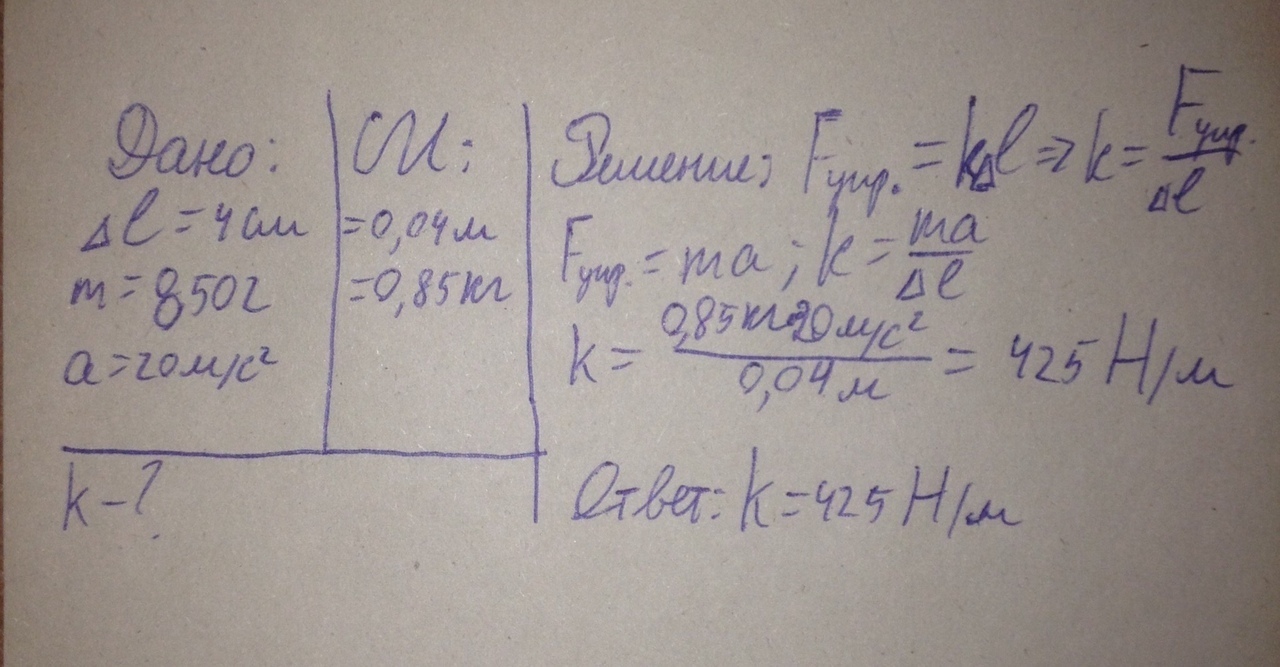 Дано:
Δl = 4 см
m = 850 г
a = 20 м/с²
k - ?
СИ:
= 0,04 м
= 0,85 кг
Решение: Fупр. = kΔl => k = Fупр. / Δl
Fупр. = ma ; k = ma / Δl
k = 0,85 кг · 20 м/с² / 0,04 м = 425 Н/м
Ответ: k = 425 Н/м